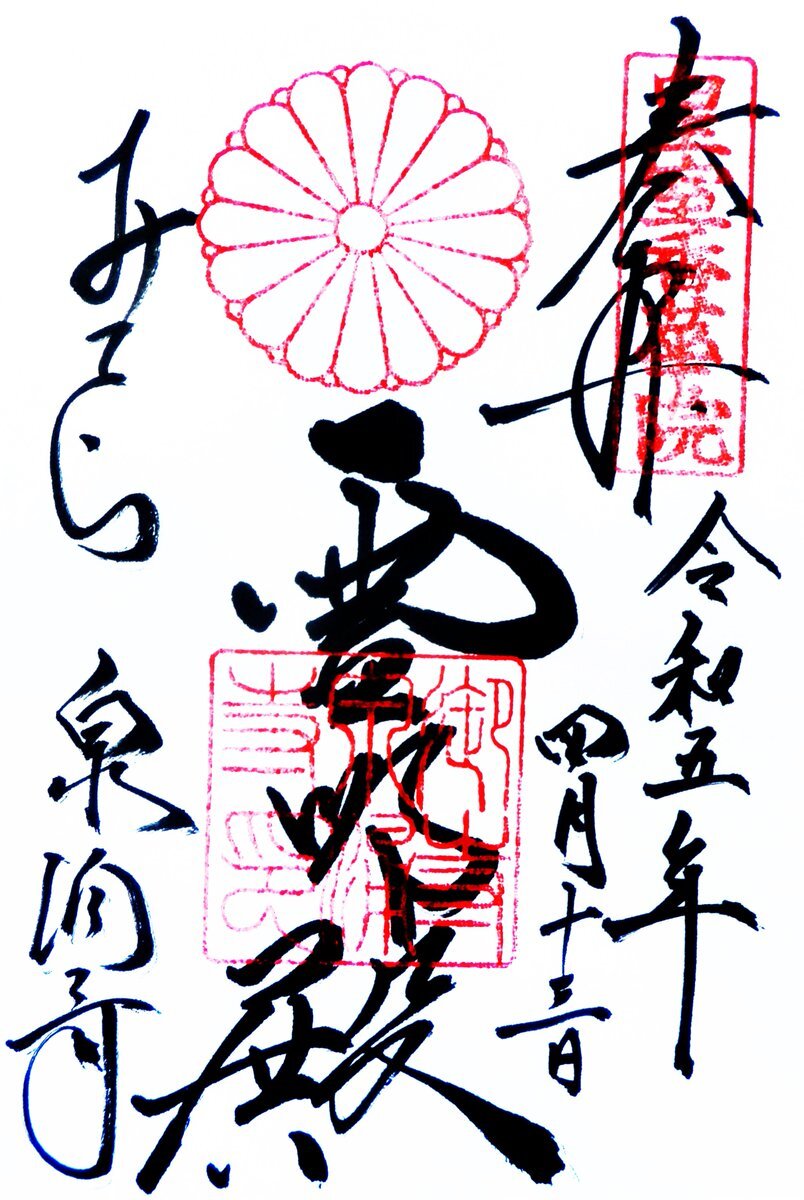 奉拝
皇室香華院
令和五年
四月十三日
霊明殿
御寺泉涌寺印
みてら
泉涌寺